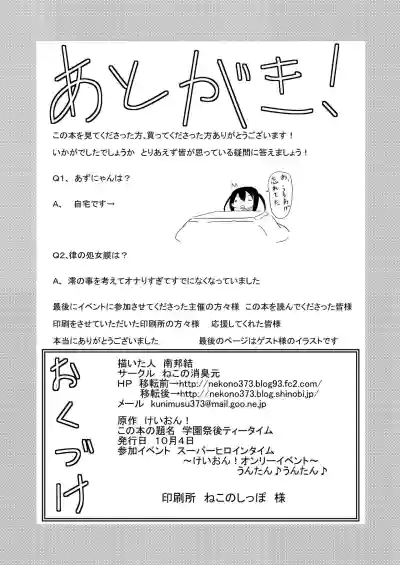 あとがき！
この本を見てくださった方、買ってくださった方ありがとうございます！
いかがでしたでしょうか　とりあえず皆が思っている疑問に答えましょう！
Q1、あずにゃんは？
あ、
忘れてた
A、　自宅です→
最後にイベントに参加させてくださった主催の方々様　この本を読んでくださった皆様
印刷をさせていただいた印刷所の方々様　応援してくれた皆様
本当にありがとうございました　最後のページはゲスト様のイラストです
おくづけ
描いた人　南邦結
サークル　ねこの消臭元
HP　移転前→http://nekono373.blog93.fc2.com/
移転後→http://nekono373.blog.shinobi.jp/
メール　kunimusu373@mail.goo.ne.jp
原作　けいおん！
この本の題名　学園祭後ティータイム
発行日　１０月４日
参加イベント　スーパーヒロインタイム
～けいおん！オンリーイベント～
うんたん♪うんたん♪
印刷所　ねこのしっぽ　様